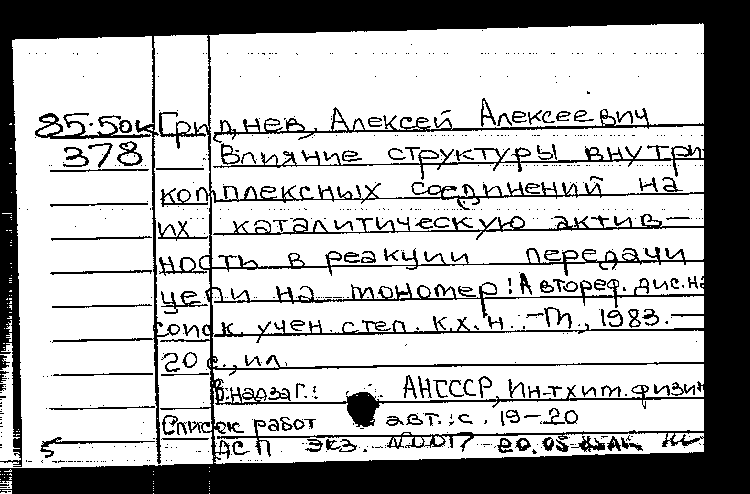 85-50к Гриднев, Алексей Алексеевич
378 Влияние структуры внутри
комплексных соединений на
их каталитическую актив-
ность в реакции передачи
цепи на мономер: Автореф. дис. на
соиск. учен. степ. к.х.н. - М., 1983. -
20 с., ил.
В надзаг.: АН СССР, Ин-т хим. физики
Список работ авт.: с. 19-20
5 ДСП экз. N0017